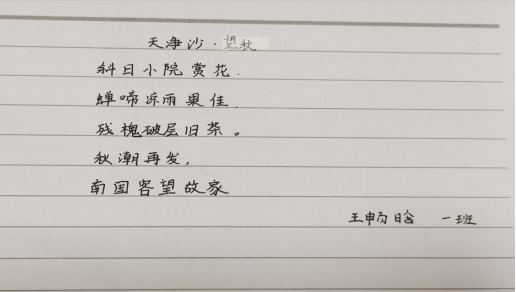 天净沙·望秋
科日小院赏花.
蝉啼凉雨果佳.
残槐破层旧茶。
秋潮再发,
南国客望故家
王畅晗 一班